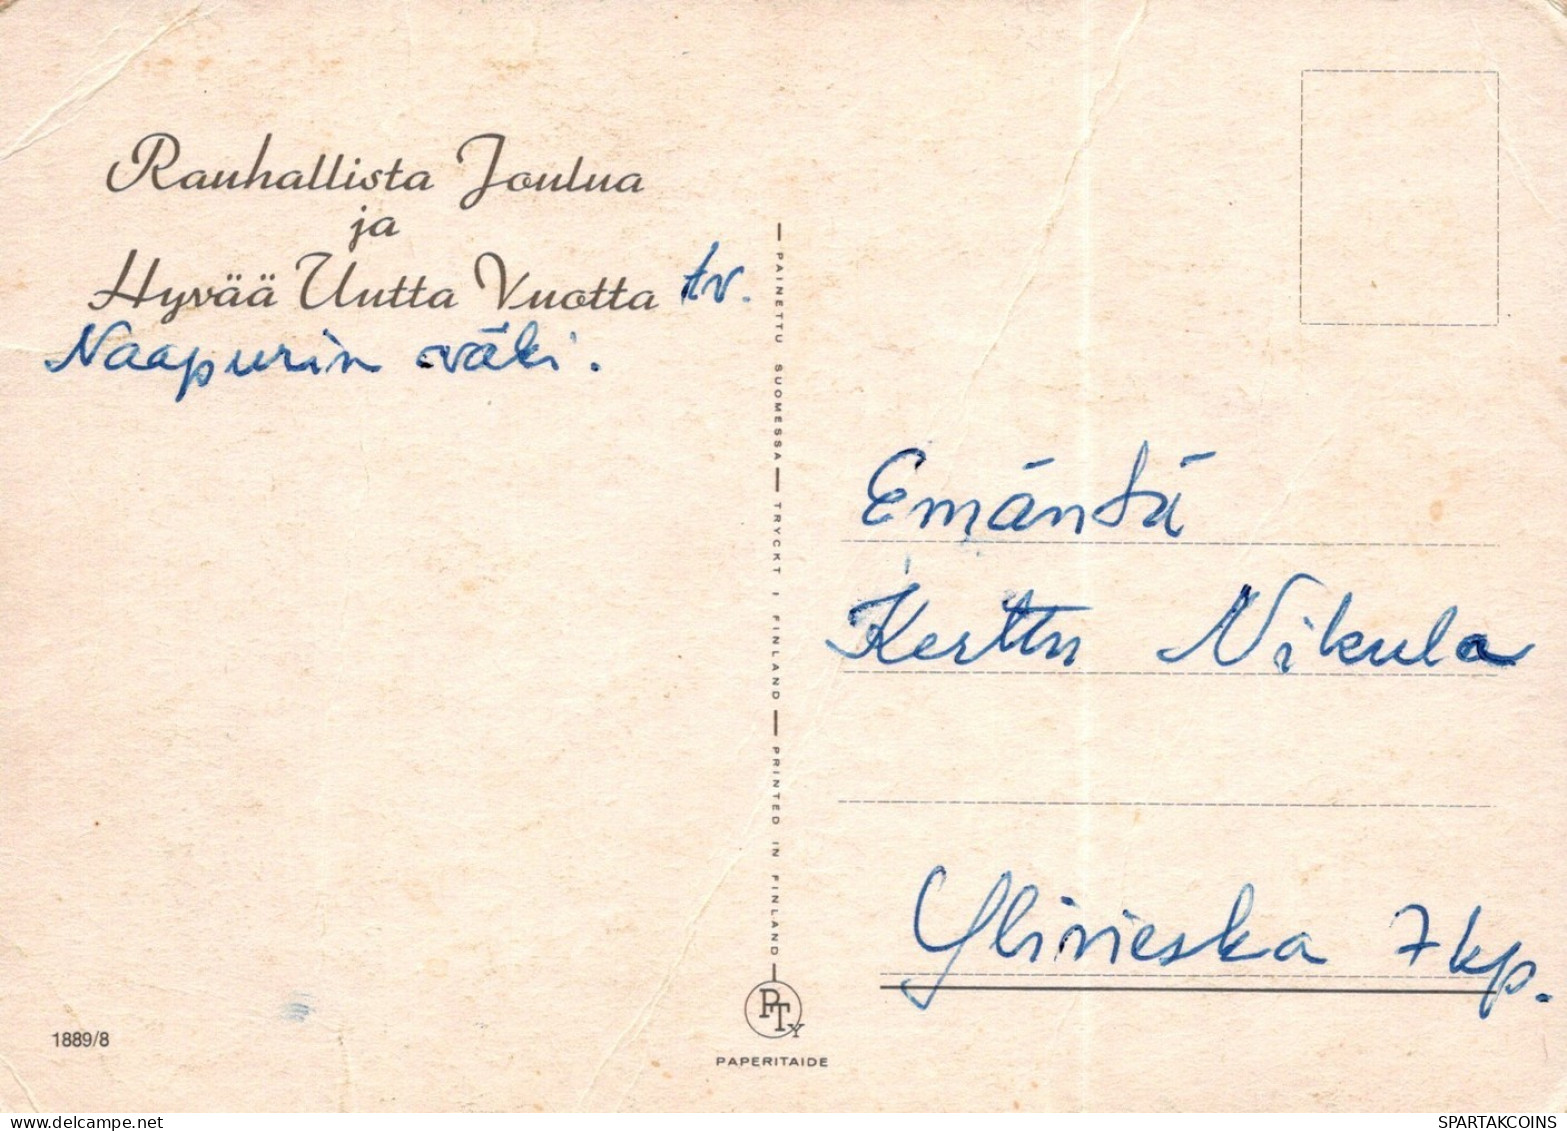 Rauhallista Joulua
ja
Hyvää Uutta Vuotta tv.
Naapurin väki.
PAINETTU SUOMESSA — TRYCKT I FINLAND — PRINTED IN FINLAND
Emäntä
Kerttu Nikula
Ylivieska 7 kp.
1889/8
PTY
PAPERITAIDE
SPARTAKCOINS